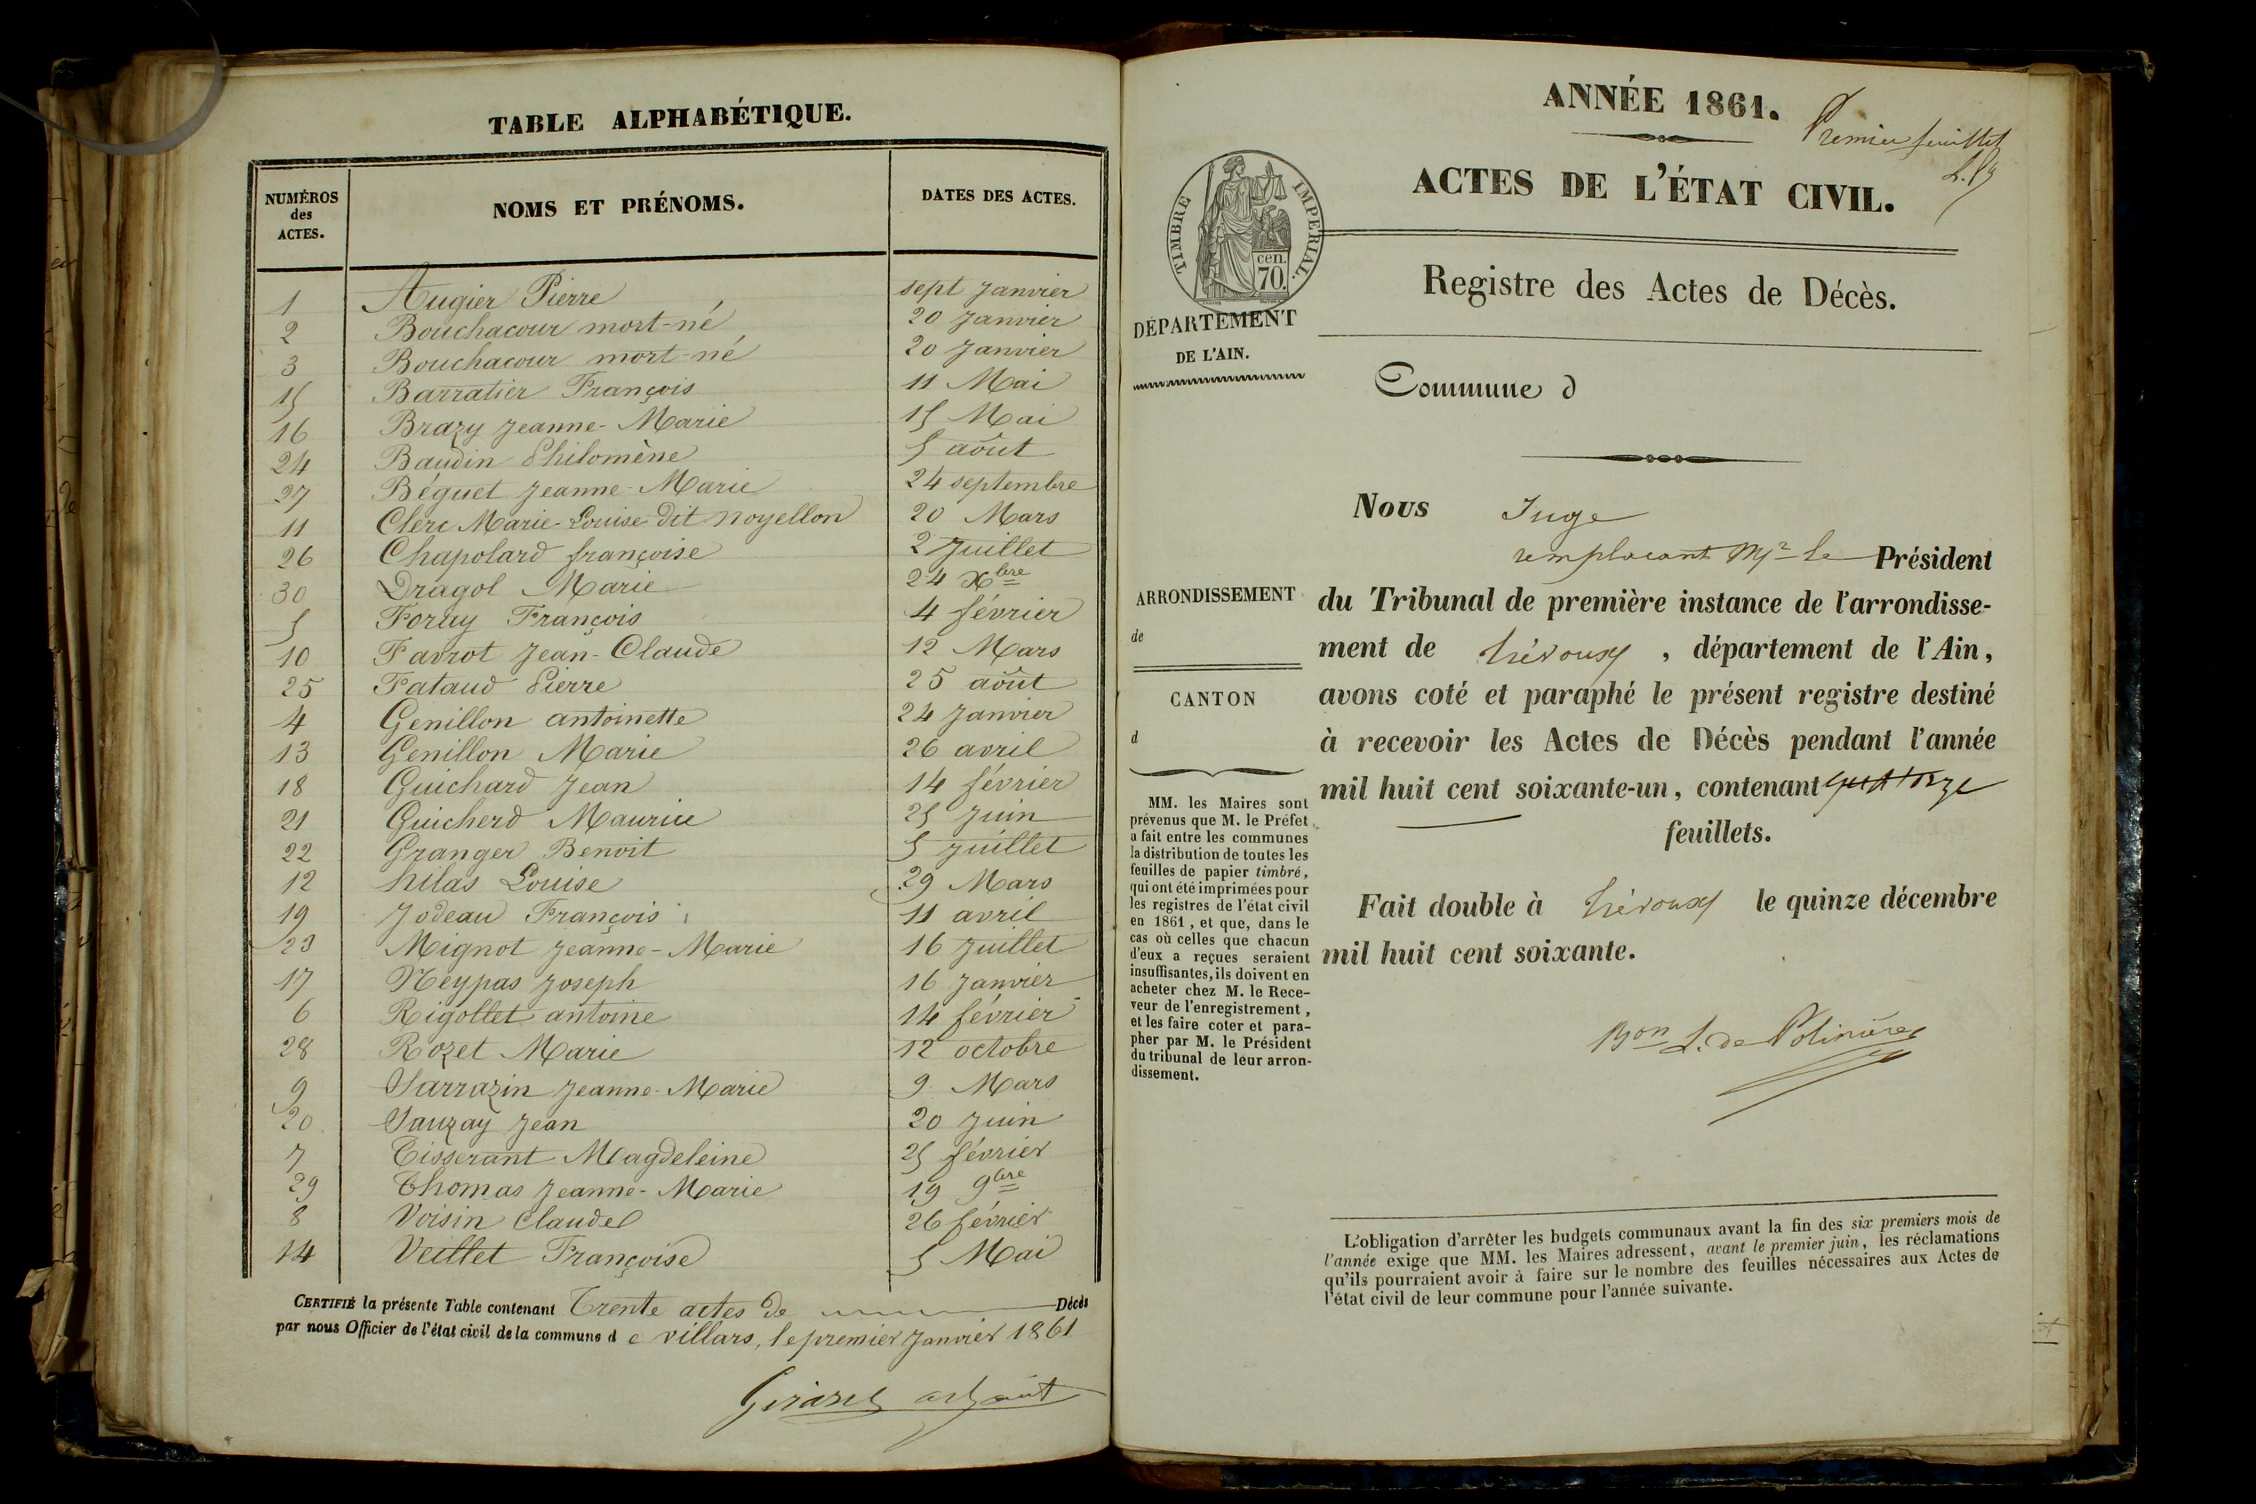 TABLE ALPHABÉTIQUE.
NUMÉROS des ACTES. NOMS ET PRÉNOMS. DATES DES ACTES.
1 Augier Pierre sept janvier
2 Bouchacour mort-né 20 janvier
3 Bouchacour mort-né 20 janvier
15 Barratier François 11 Mai
16 Brazy jeanne-Marie 15 Mai
24 Baudin Philomène 5 août
27 Béguet jeanne-Marie 24 septembre
11 Clerc Marie-Louise dit noyellon 20 Mars
26 Chapolard françoise 2 juillet
30 Dragol Marie 24 Xbre
5 Foray François 4 février
10 Favrot jean-Claude 12 Mars
25 Fataud Pierre 25 août
4 Genillon antoinette 24 janvier
13 Genillon Marie 26 avril
18 Guichard jean 14 février
21 Guicherd Maurice 25 juin
22 Granger Benoit 5 juillet
12 hilas Louise 29 Mars
19 jodeau François 11 avril
23 Mignot jeanne-Marie 16 juillet
17 Neypas joseph 16 janvier
6 Rigollet antoine 14 février
28 Rozet Marie 12 octobre
9 Sarrazin jeanne-Marie 9 Mars
20 Sauzay jean 20 juin
7 Tisserant Magdeleine 25 février
29 Thomas jeanne-Marie 19 9bre
8 Voisin Claude 26 février
14 Veillet Françoise 5 Mai
CERTIFIÉ la présente Table contenant Trente actes de Décès
par nous Officier de l'état civil de la commune d e villars, le premier janvier 1861
Girard adjoint
ANNÉE 1861.
Premier feuillet
ACTES DE L'ÉTAT CIVIL.
TIMBRE IMPÉRIAL.
cen.
70.
Registre des Actes de Décès.
DÉPARTEMENT
DE L'AIN.
Commune d
Nous Juge
remplacant Mr le Président
du Tribunal de première instance de l'arrondisse-
ment de trévoux, département de l'Ain,
avons coté et paraphé le présent registre destiné
à recevoir les Actes de Décès pendant l'année
mil huit cent soixante-un, contenant quatorze
feuillets.
Fait double à trévoux le quinze décembre
mil huit cent soixante.
Bon L. de Polinière
ARRONDISSEMENT
de
CANTON
d
MM. les Maires sont
prévenus que M. le Préfet
a fait entre les communes
la distribution de toutes les
feuilles de papier timbré,
qui ont été imprimées pour
les registres de l'état civil
en 1861, et que, dans le
cas où celles que chacun
d'eux a reçues seraient
insuffisantes, ils doivent en
acheter chez M. le Rece-
veur de l'enregistrement,
et les faire coter et para-
pher par M. le Président
du tribunal de leur arron-
dissement.
L'obligation d'arrêter les budgets communaux avant la fin des six premiers mois de
l'année exige que MM. les Maires adressent, avant le premier juin, les réclamations
qu'ils pourraient avoir à faire sur le nombre des feuilles nécessaires aux Actes de
l'état civil de leur commune pour l'année suivante.